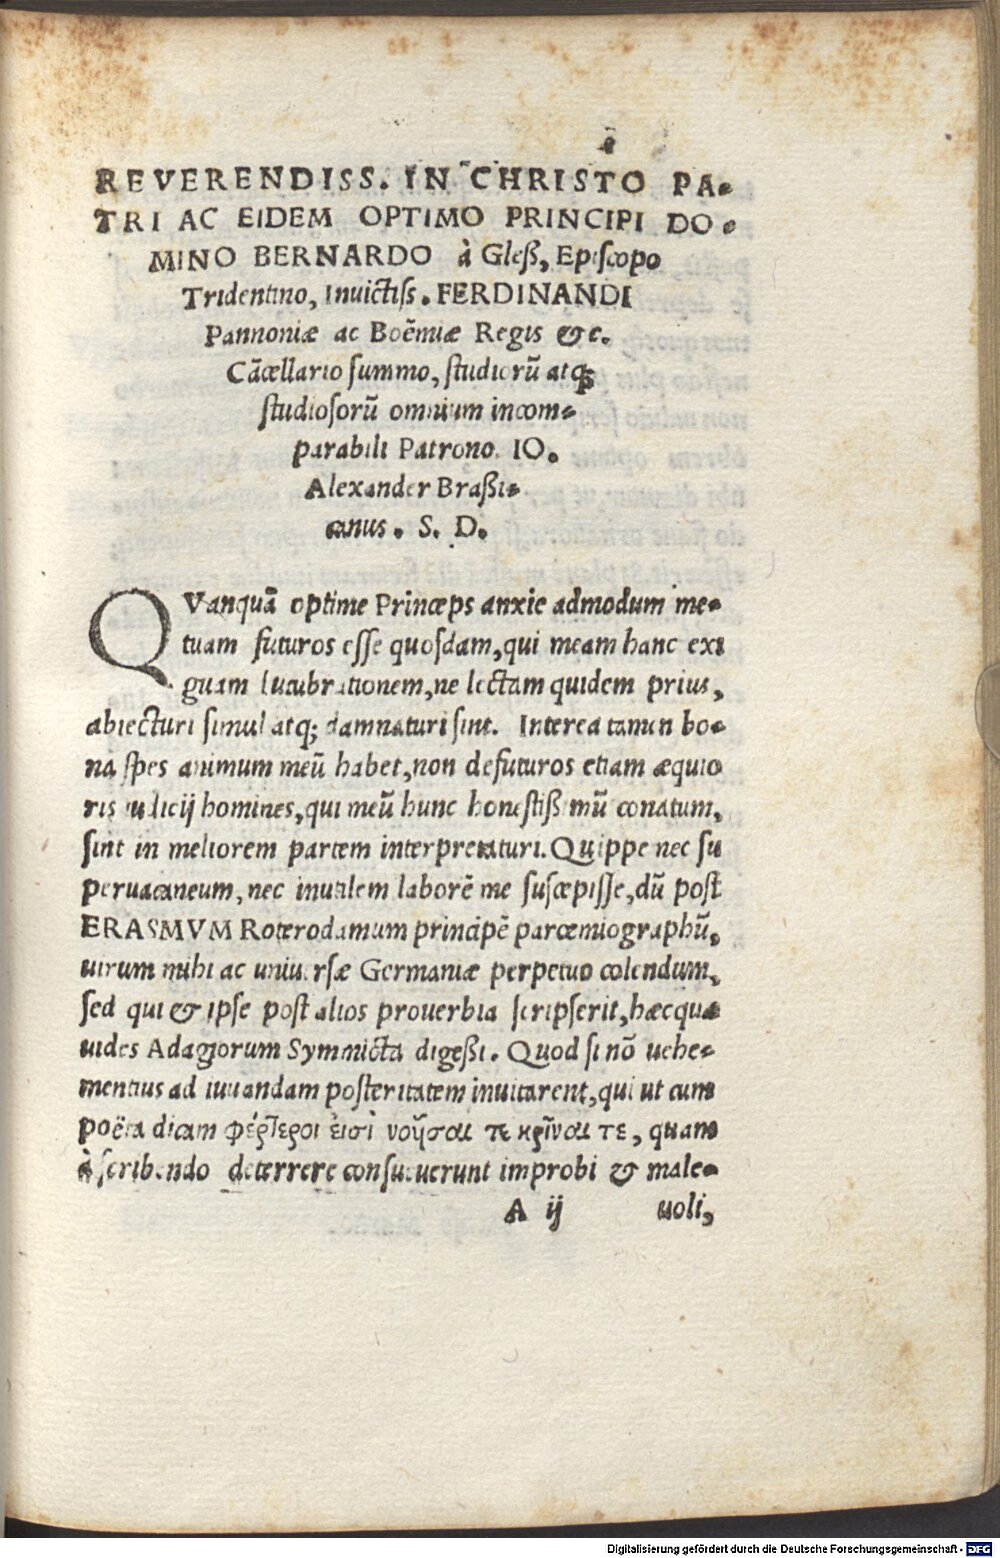 REVERENDISS. IN CHRISTO PA-
TRI AC EIDEM OPTIMO PRINCIPI DO-
MINO BERNARDO à Gleß, Episcopo
Tridentino, Inuictiſſ. FERDINANDI
Pannoniæ ac Boẽmiæ Regis &c.
Cãcellario ſummo, ſtudiorũ atq;
ſtudioſorũ omnium incom-
parabili Patrono. IO.
Alexander Braßi-
canus. S. D.
QVanquã optime Princeps anxie admodum me-
tuam futuros eſſe quoſdam, qui meam hanc exi
guam lucubrationem, ne lectam quidem prius,
abiecturi ſimul atq; damnaturi ſint. Interea tamen bo-
na ſpes animum meũ habet, non defuturos etiam æquio
ris iudicij homines, qui meũ hunc honeſtißimũ conatum,
ſint in meliorem partem interpretaturi. Quippe nec ſu
peruacaneum, nec inutilem laborẽ me ſuſcepiſſe, dũ poſt
ERASMVM Roterodamum principẽ parœmiographũ,
uirum mihi ac uniuerſæ Germaniæ perpetuo colendum,
ſed qui & ipſe poſt alios prouerbia ſcripſerit, hæc quæ
uides Adagiorum Symmicta digeßi. Quod ſi nõ uehe-
mentius ad iuuandam poſteritatem inuitarent, qui ut cum
poëta dicam φέρτεροι εἰσὶ νοῆσαι τε κρῖναι τε, quam
à ſcribendo deterrere conſueuerunt improbi & male-
A ij uoli,
Digitalisierung gefördert durch die Deutsche Forschungsgemeinschaft - DFG